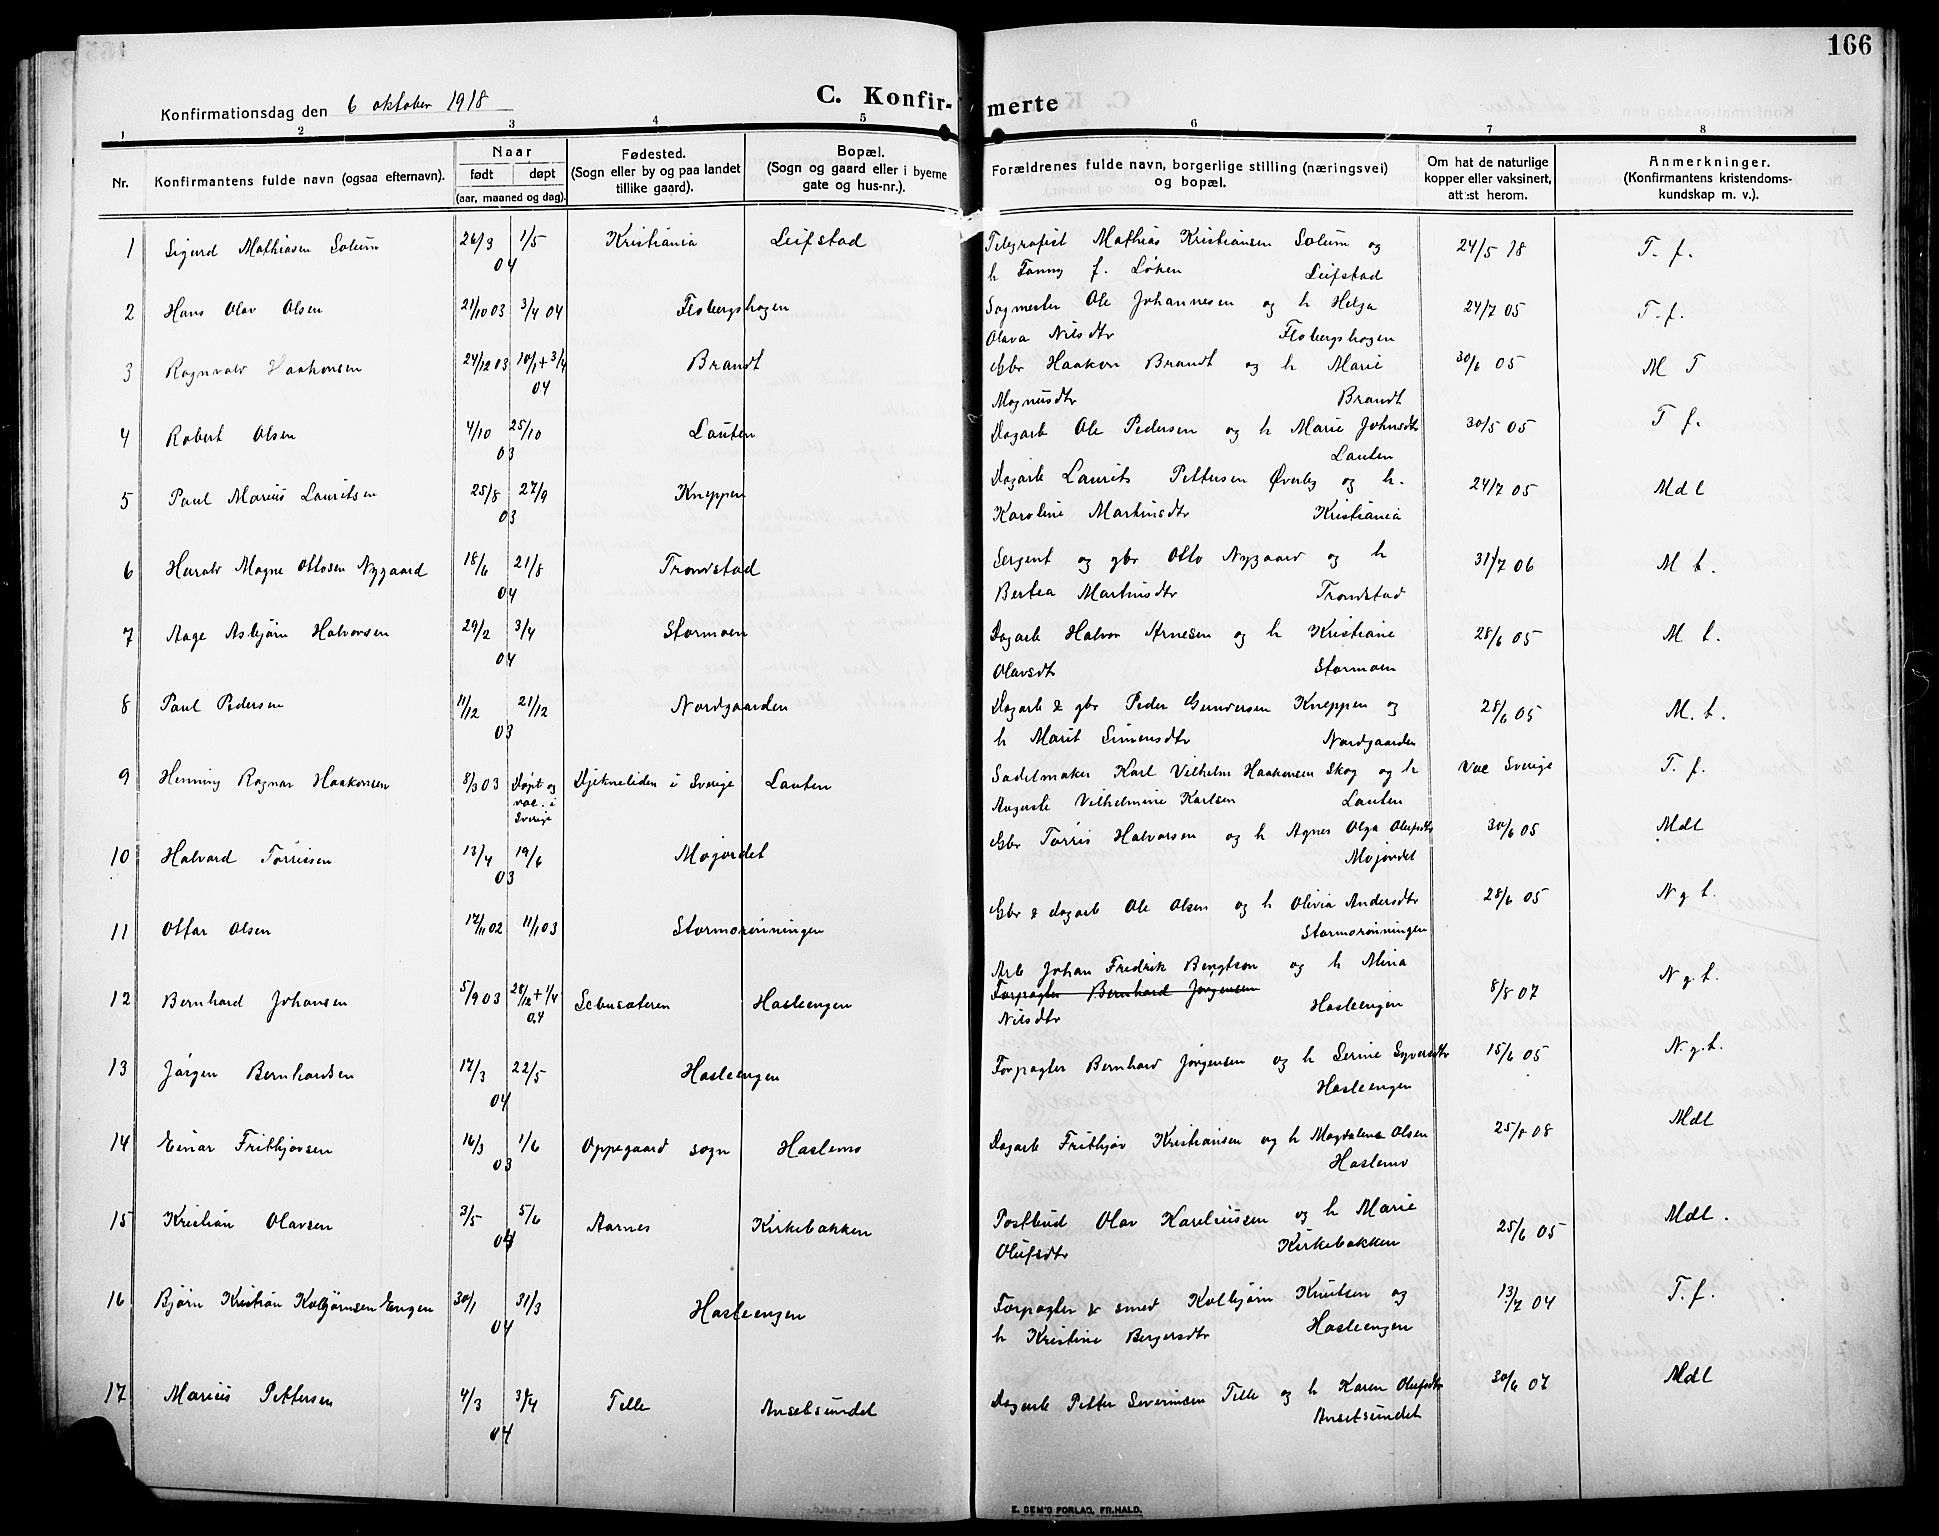 166
Konfirmationsdag den 6 oktober 1918
C. Konfir-
merte
1 2 3 4 5 6 7 8
Nr.
Konfirmantens fulde navn (ogsaa efternavn).
Naar
født døpt
(aar, maaned og dag).
Fødested.
(Sogn eller by og paa landet
tillike gaard).
Bopæl.
(Sogn og gaard eller i byerne
gate og hus-nr.).
Forældrenes fulde navn, borgerlige stilling (næringsvei)
og bopæl.
Om hat de naturlige
kopper eller vaksinert,
attest herom.
Anmerkninger.
(Konfirmantens kristendoms-
kundskap m. v.).
1 Sigurd Mathiasen Solum 26/3 1/5 Kristiania Leifstad Telegrafist Mathias Kristiansen Solum og 24/5 18 T. f.
04 h Fanny f. Løken Leifstad
2 Hans Olav Olsen 21/10 03 3/4 04 Flisbergshagen Sagmester Ole Johannesen og h Helga 24/7 05 T. f.
Olava Nilsdtr Flisbergshagen
3 Ragnvald Haakonsen 24/12 03 10/1 + 3/4 Brandt Gbr Haakon Brandt og h Marie 30/6 05 M T
04 Magnusdtr Brandt
4 Robert Olsen 4/10 25/10 Lauten Dagarb Ole Pedersen og h Marie Johnsdtr 30/5 05 T f.
03 Lauten
5 Paul Marius Lauritsen 25/8 27/9 Kneppen Dagarb Laurits Pettersen Øverby og h. 24/7 05 Mdl
03 Karoline Martinsdtr Kristiania
6 Harald Magne Ottosen Nygaard 18/6 21/8 Trondstad Sergent og gbr Otto Nygaard og h 31/7 06 M t.
04 Bertea Martinsdtr Trondstad
7 Aage Asbjørn Halvorsen 29/2 3/4 Stormoen Dagarb Halvor Arnesen og h Kristiane 28/6 05 M t.
04 Olavsdtr Stormoen
8 Paul Pedersen 11/12 21/12 Nordgaarden Dagarb & gbr Peder Gundersen Kneppen og 28/6 05 M. t.
03 h Marit Simensdtr Nordgaarden
9 Henning Ragnar Haakonsen 8/3 03 Døpt og vac. i Sverige Djekneliden i Sverige Lauten Sadelmaker Karl Vilhelm Haakonsen Skog og h Vac Sverige T. f.
Auguste Vilhelmine Karlsen Lauten
10 Halvard Tørrisen 13/4 19/6 Mojordet Gbr Tørris Halvorsen og h Agnes Olga Olufsdtr 30/6 05 Mdl
03 Mojordet
11 Ottar Olsen 17/11 02 11/1 03 Stormorønningen Gbr & dagarb Ole Olsen og h Olivia Andersdtr 28/6 05 N g t.
Stormorønningen
12 Bernhard Johansen 5/9 03 28/12 + 1/4 04 Sebusæteren Hasleengen Arb Johan Fredrik Bengtson og h Alina 8/8 07 N g. t.
Forpagter Bernhard Jørgensen
Nilsdtr Hasleengen
13 Jørgen Bernhardsen 17/3 22/5 Hasleengen Forpagter Bernhard Jørgensen og h Serine Syversdtr 15/6 05 N. g. t.
04 Hasleengen
14 Einar Frithjovsen 16/3 1/6 Oppegaard sogn Haslemo Dagarb Frithjov Kristiansen og h Magdalena Olsen 25/8 08 Mdl
03 Haslemo
15 Kristian Olavsen 3/5 5/6 Aarnes Kirkebakken Postbud Olav Kareliussen og h Marie 25/6 05 Mdl.
04 Olufsdtr Kirkebakken
16 Bjørn Kristian Kolbjørnsen Engen 30/1 31/3 Hasleengen Forpagter & smed Kolbjørn Knutsen og 13/7 04 T. f.
04 h Kristine Bergersdtr Hasleengen
17 Marius Pettersen 4/3 3/4 Telle Arsetsundet Dagarb Petter Severinsen Telle og h Karen Olufsdtr 30/6 07 Mdl
04 Arsetsundet
E. SEM'S FORLAG, FR.HALD.